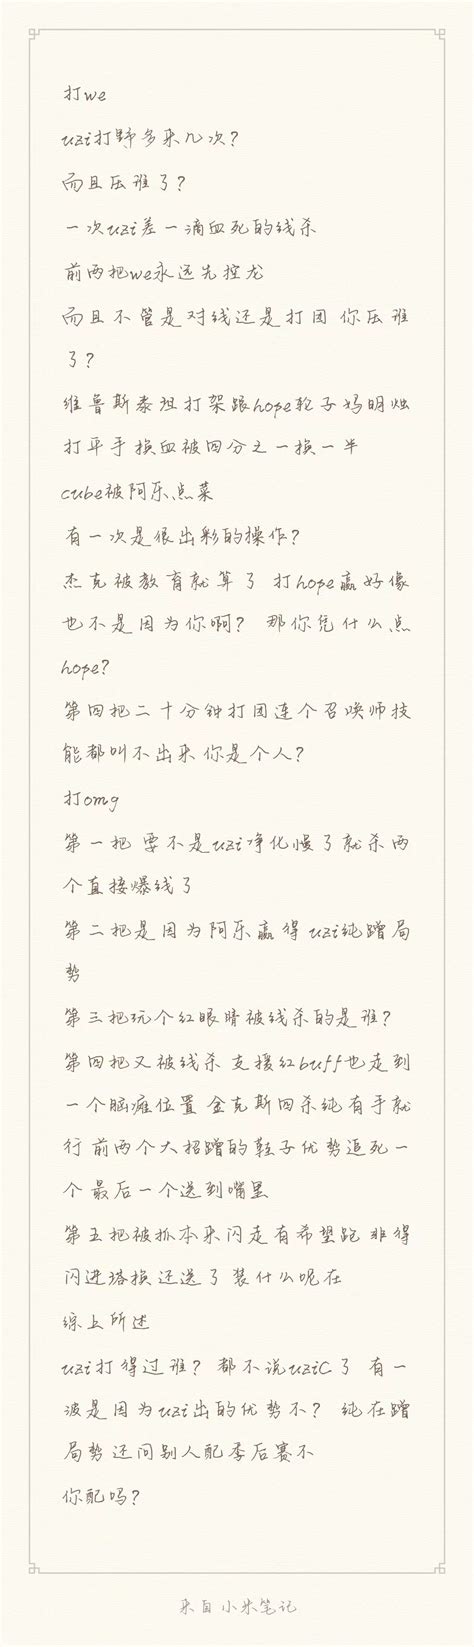 打we
uzi打野多来几次？
而且压谁了？
一次uzi差一滴血死的线杀
前两把we永远先控龙
而且不管是对线还是打团 你压谁
了？
维鲁斯泰坦打架跟hope轮子妈明烛
打平手换血被四分之一换一半
cube被阿乐点菜
有一次是很出彩的操作？
杰克被教育就算了 打hope赢好像
也不是因为你啊？ 那你凭什么点
hope？
第四把二十分钟打团连个召唤师技
能都叫不出来 你是个人？
打omg
第一把 要不是uzi净化慢了就杀两
个直接爆线了
第二把是因为阿乐赢得 uzi纯蹭局
势
第三把玩个红眼睛被线杀的是谁？
第四把又被线杀 支援红buff也走到
一个脑瘫位置 金克斯四杀纯有手就
行 前两个大招蹭的鞋子优势追死一
个 最后一个送到嘴里
第五把被抓本来闪走有希望跑 非得
闪进塔换 还送了 装什么呢在
综上所述
uzi打得过谁？ 都不说uziC了 有一
波是因为uzi出的优势不？ 纯在蹭
局势 还问别人配季后赛不
你配吗？
来自小米笔记